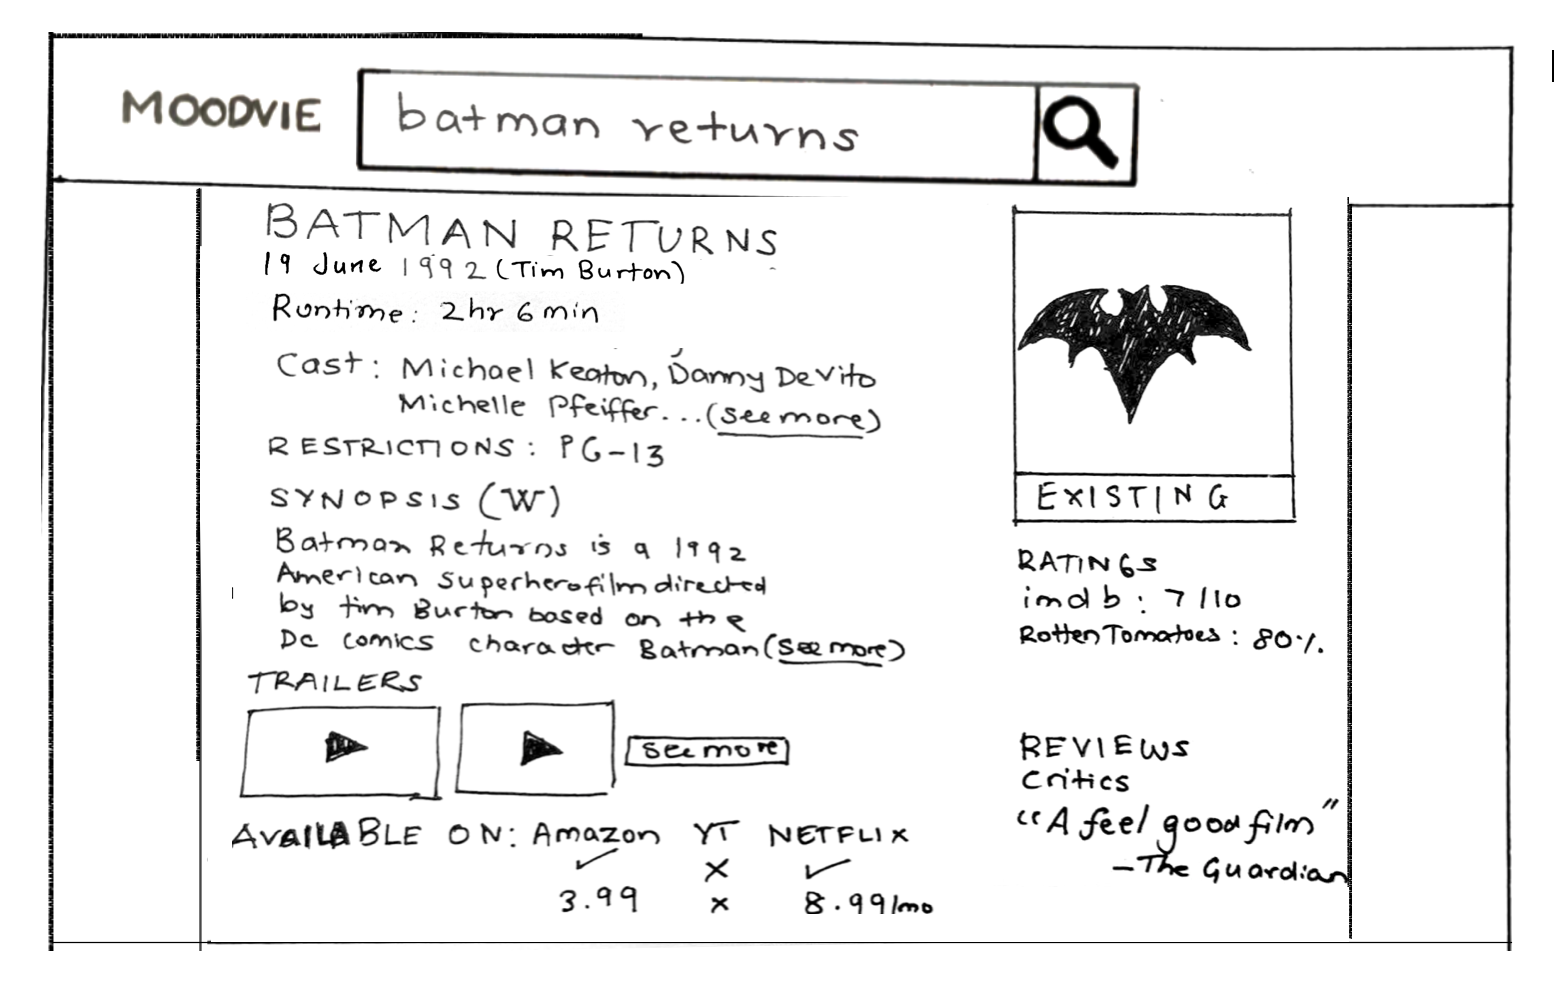 MOODVIE
batman returns
BATMAN RETURNS
19 June 1992 (Tim Burton)
Runtime: 2hr 6 min
Cast: Michael Keaton, Danny DeVito
Michelle Pfeiffer...(see more)
RESTRICTIONS: PG-13
SYNOPSIS (W)
Batman Returns is a 1992
American superhero film directed
by tim Burton based on the
DC comics character Batman (see more)
TRAILERS
see more
AVAILABLE ON: Amazon YT NETFLIX
✓ × ✓
3.99 × 8.99/mo
EXISTING
RATINGS
imdb: 7/10
Rotten Tomatoes: 80%.
REVIEWS
Critics
“A feel good film”
-The Guardian